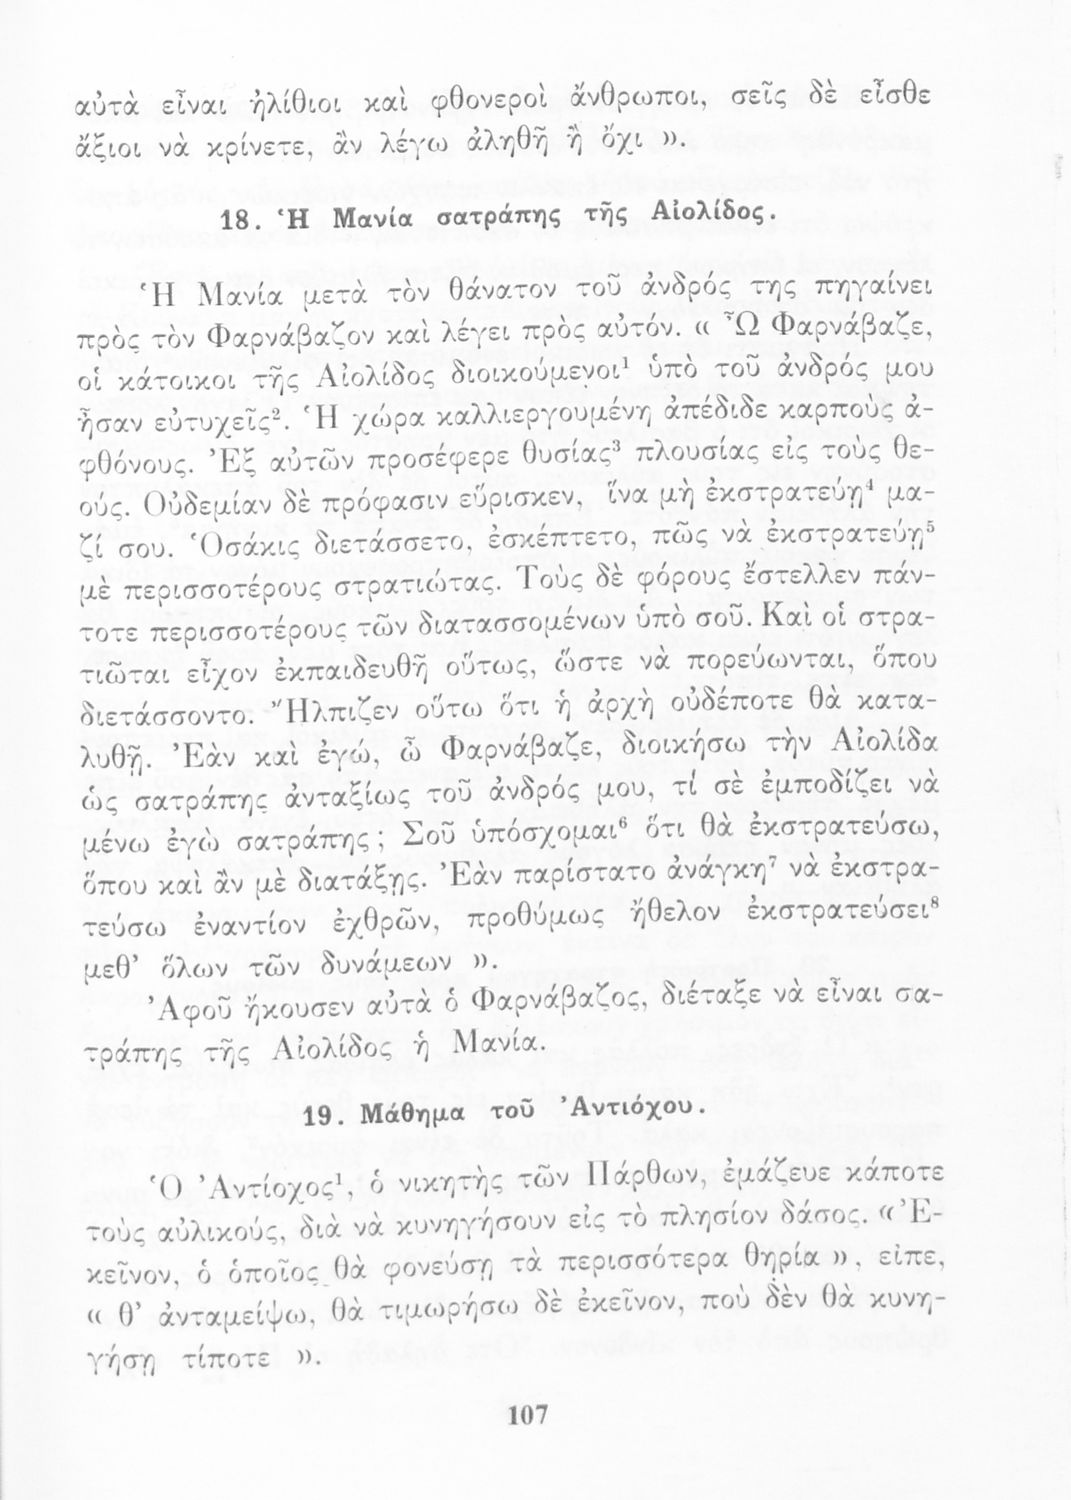 αὐτὰ εἶναι ἠλίθιοι καὶ φθονεροὶ ἄνθρωποι, σεῖς δὲ εἶσθε
ἄξιοι νὰ κρίνετε, ἂν λέγω ἀληθῆ ἢ ὄχι ».
18. Ἡ Μανία σατράπης τῆς Αἰολίδος.
Ἡ Μανία μετὰ τὸν θάνατον τοῦ ἀνδρός της πηγαίνει
πρὸς τὸν Φαρνάβαζον καὶ λέγει πρὸς αὐτόν. « Ὦ Φαρνάβαζε,
οἱ κάτοικοι τῆς Αἰολίδος διοικούμενοι¹ ὑπὸ τοῦ ἀνδρός μου
ἦσαν εὐτυχεῖς². Ἡ χώρα καλλιεργουμένη ἀπέδιδε καρποὺς ἀ-
φθόνους. Ἐξ αὐτῶν προσέφερε θυσίας³ πλουσίας εἰς τοὺς θε-
ούς. Οὐδεμίαν δὲ πρόφασιν εὕρισκεν, ἵνα μὴ ἐκστρατεύῃ⁴ μα-
ζί σου. Ὁσάκις διετάσσετο, ἐσκέπτετο, πῶς νὰ ἐκστρατεύῃ⁵
μὲ περισσοτέρους στρατιώτας. Τοὺς δὲ φόρους ἔστελλεν πάν-
τοτε περισσοτέρους τῶν διατασσομένων ὑπὸ σοῦ. Καὶ οἱ στρα-
τιῶται εἶχον ἐκπαιδευθῆ οὕτως, ὥστε νὰ πορεύωνται, ὅπου
διετάσσοντο. Ἤλπιζεν οὕτω ὅτι ἡ ἀρχὴ οὐδέποτε θὰ κατα-
λυθῇ. Ἐὰν καὶ ἐγώ, ὦ Φαρνάβαζε, διοικήσω τὴν Αἰολίδα
ὡς σατράπης ἀνταξίως τοῦ ἀνδρός μου, τί σὲ ἐμποδίζει νὰ
μένω ἐγὼ σατράπης ; Σοῦ ὑπόσχομαι⁶ ὅτι θὰ ἐκστρατεύσω,
ὅπου καὶ ἂν μὲ διατάξῃς. Ἐὰν παρίστατο ἀνάγκη⁷ νὰ ἐκστρα-
τεύσω ἐναντίον ἐχθρῶν, προθύμως ἤθελον ἐκστρατεύσει⁸
μεθ’ ὅλων τῶν δυνάμεων ».
Ἀφοῦ ἤκουσεν αὐτὰ ὁ Φαρνάβαζος, διέταξε νὰ εἶναι σα-
τράπης τῆς Αἰολίδος ἡ Μανία.
19. Μάθημα τοῦ Ἀντιόχου.
Ὁ Ἀντίοχος¹, ὁ νικητὴς τῶν Πάρθων, ἐμάζευε κάποτε
τοὺς αὐλικούς, διὰ νὰ κυνηγήσουν εἰς τὸ πλησίον δάσος. « Ἐ-
κεῖνον, ὁ ὁποῖος θὰ φονεύσῃ τὰ περισσότερα θηρία », εἶπε,
« θ’ ἀνταμείψω, θὰ τιμωρήσω δὲ ἐκεῖνον, ποὺ δὲν θὰ κυνη-
γήσῃ τίποτε ».
107